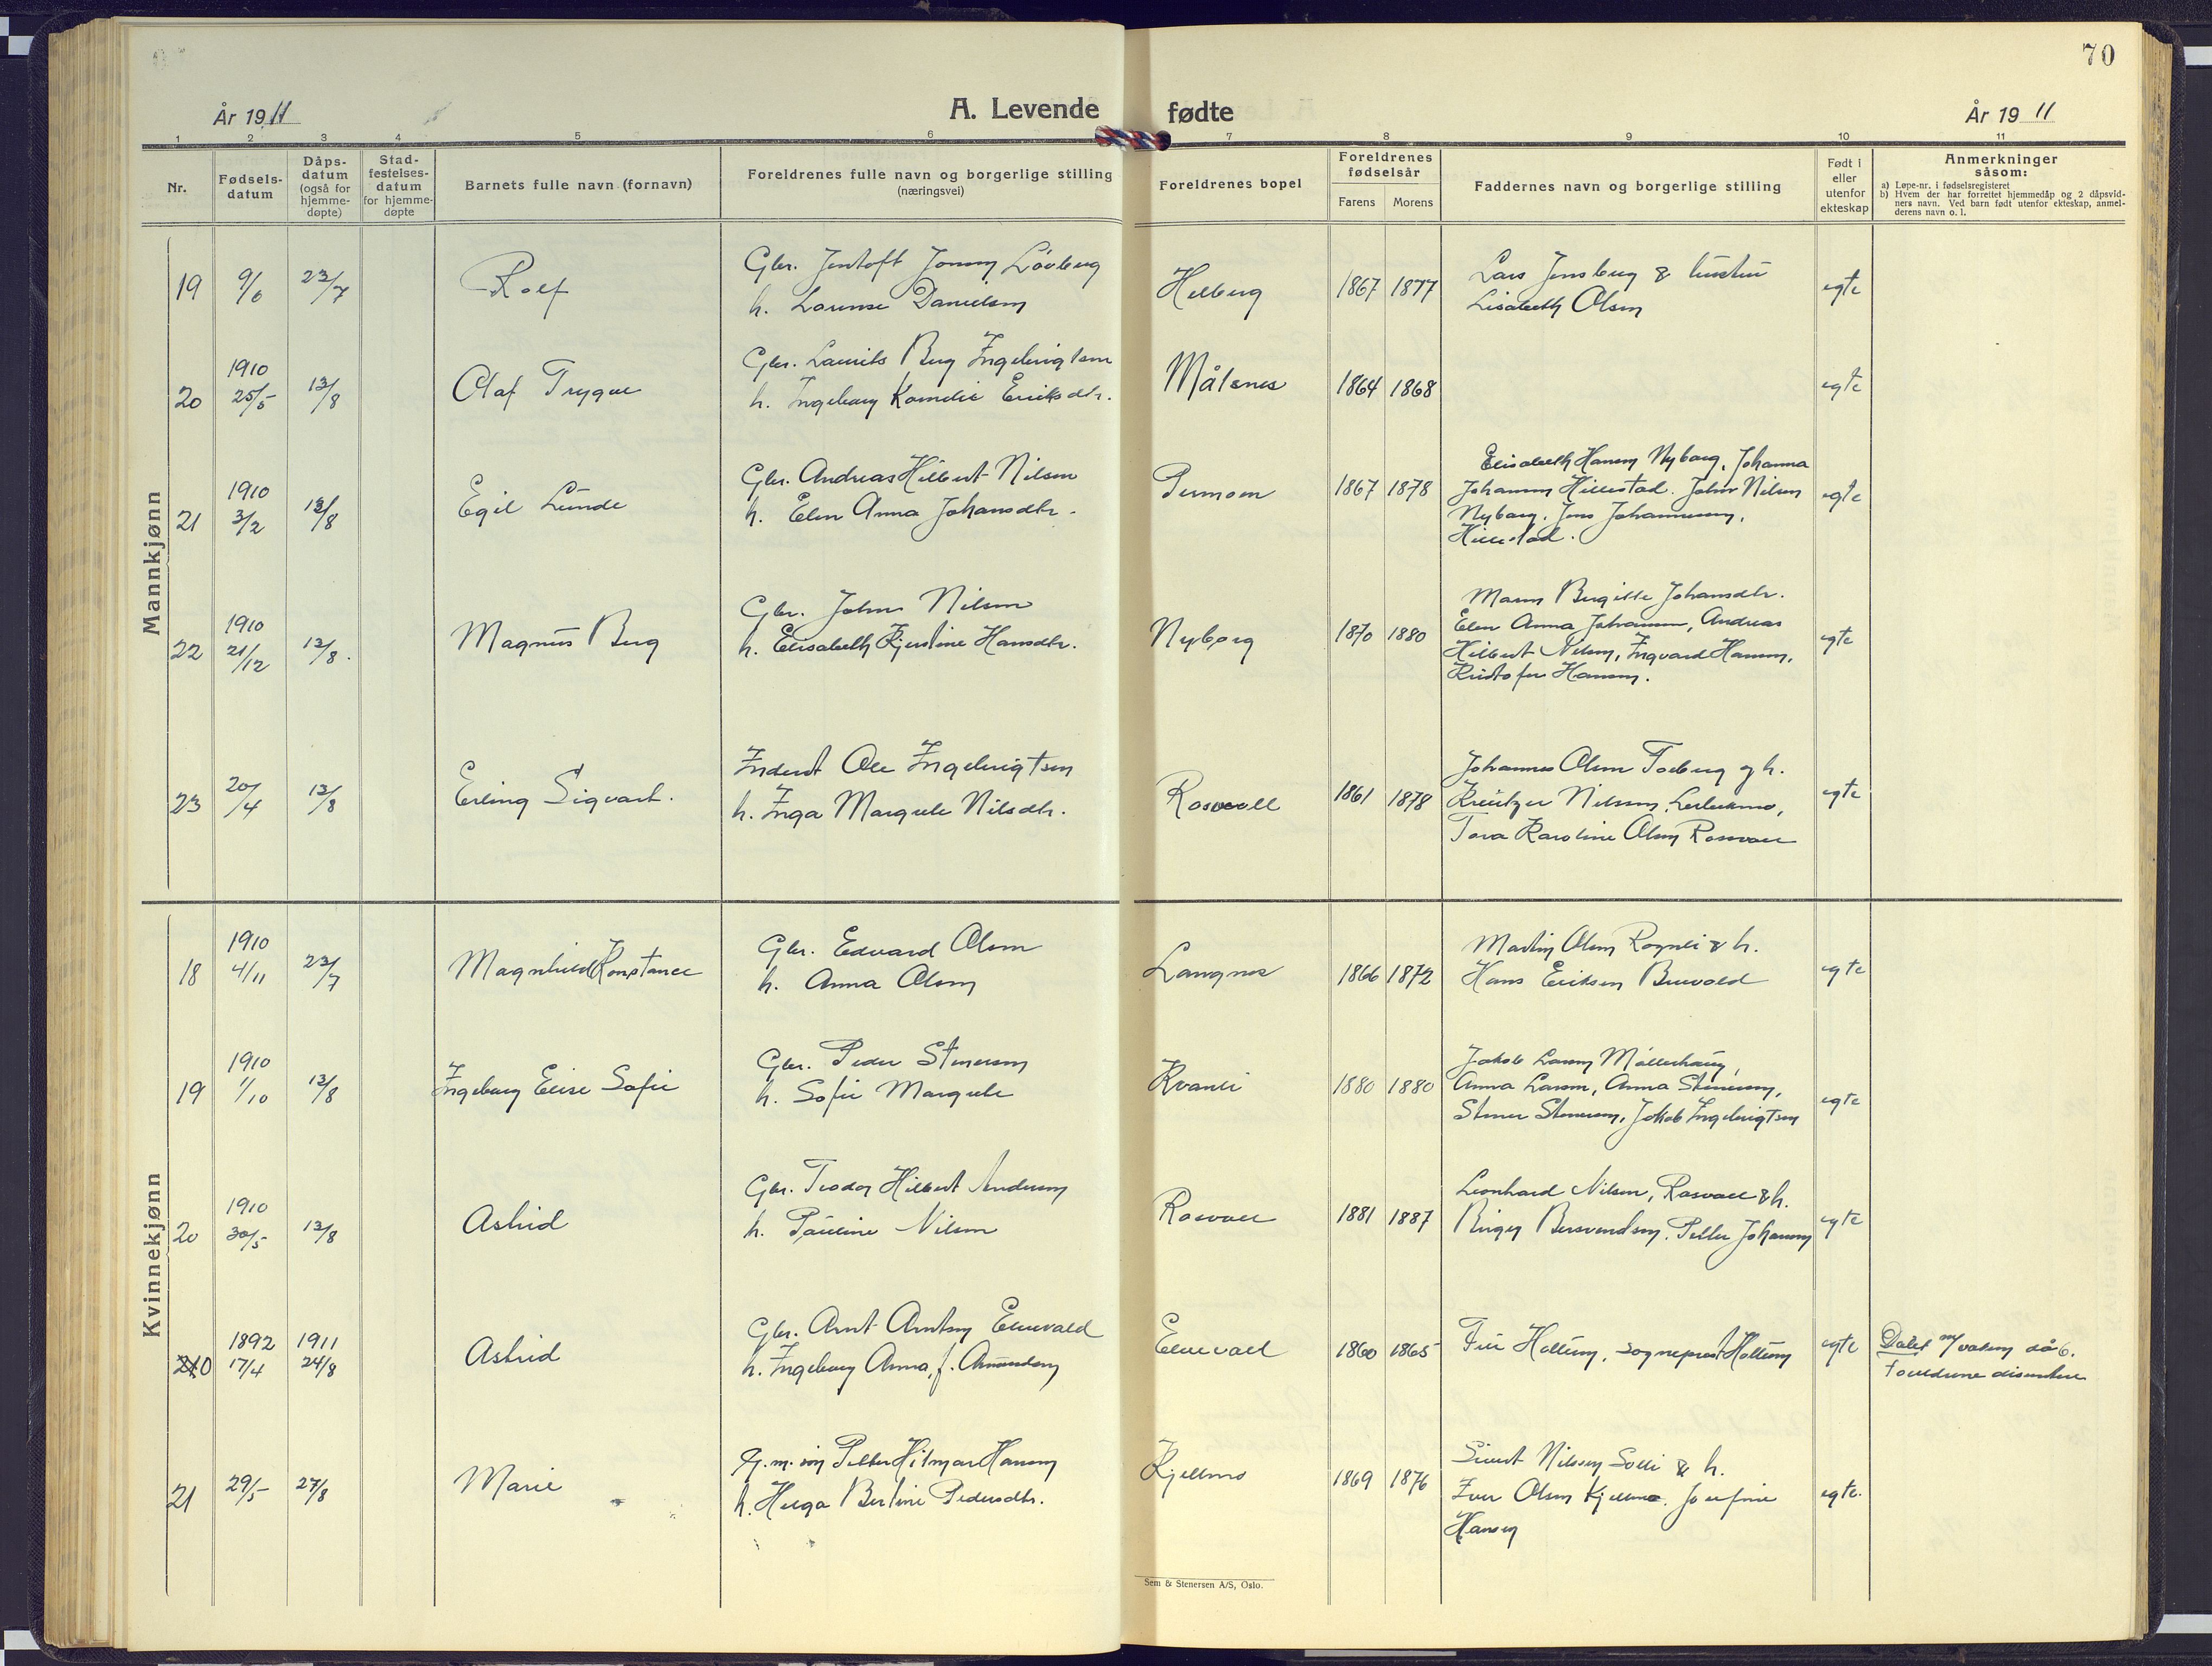 70
År 1911
A. Levende fødte
År 1911
1 2 3 4 5 6 7 8 9 10 11
Nr.
Fødsels-
datum
Dåps-
datum
(også for
hjemme-
døpte)
Stad-
festelses-
datum
for hjemme-
døpte
Barnets fulle navn (fornavn)
Foreldrenes fulle navn og borgerlige stilling
(næringsvei)
Foreldrenes bopel
Foreldrenes
fødselsår
Farens Morens
Faddernes navn og borgerlige stilling
Født i
eller
utenfor
ekteskap
Anmerkninger
såsom:
a) Løpe-nr. i fødselsregisteret
b) Hvem der har forrettet hjemmedåp og 2 dåpsvid-
ners navn. Ved barn født utenfor ekteskap, anmel-
derens navn o. l.
Mannkjønn
19 9/6 23/7 Rolf
Gbr. Jentoft Jonsen Lövberg
h. Lorense Danielsen
Helberg 1867 1877
Lars Jensberg & hustru
Lisabeth Olsen
egte
20 1910 25/5 13/8 Olaf Trygve
Gbr. Laurits Berg Ingebrigtsen
h. Ingeborg Kornelie Eriksdtr.
Målsnes 1864 1868
egte
21 1910 3/2 13/8 Egil Lunde
Gbr. Andreas Hilbert Nilsen
h. Elen Anna Johansdtr.
1867 1878
Elisabeth Hansen Nyborg, Johanna
Johansen Hillestad. Johan Nilsen
Nyborg. Jens Johannessen,
Hillestad.
egte
22 1910 21/12 13/8. Magnus Berg
Gbr. Johan Nilsen
h. Elisabeth Kjerstine Hansdtr.
Nyborg 1870 1880
Maren Bergitte Johansdtr.
Elen Anna Johansen, Andreas
Hilbert Nilsen, Ingvard Hansen,
Kristofer Hansen.
egte
23 20/4 13/8 Erling Sigvart.
Inderst Ole Ingebrigtsen
h. Inga Margrete Nilsdtr.
Rosvoll 1861 1878
Johannes Olsen Foberg og h.
Kreutzer Nilssen,
Tora Karoline Olsen Rosvoll
egte
Kvinnekjønn
18 1910 4/11 23/7 Magnhild Konstance
Gbr. Edvard Olsen
h. Anna Olsen
Langnes 1866 1872
Martin Olsen Rognli & h.
Hans Eriksen
egte
19 1910 1/10 13/8 Ingeborg Elise Sofie
Gbr. Peder Stenersen
h. Sofie Margrete
Kvanli 1880 1880
Jakob Larsen Möllerhaug,
Anna Larsen, Anna Stenersen,
Stener Stenersen, Jakob Ingebrigtsen
egte
20 1910 30/5 13/8 Astrid
Gbr. Teodor Hilbert Andersen
h. Pauline Nilsen
Rosvoll 1881 1887
Leonhard Nilsen, Rosvoll & h.
Birger Bersvendsen. Petter Johansen
egte
20 1892 17/4 1911 24/8 Astrid
Gbr. Arnt Arntsen Elvevold
h. Ingeborg Anna, f. Amundsen
Elvevold 1860 1865
Fru Holtung, sogneprest Holtung
egte
Døbt m/ voksen dåb.
Foreldrene dissentere
21 29/5 27/8 Marie
G.m.søn Petter Hilmar Hansen
h. Helga Bertine Pedersdtr.
Kjellmo 1869 1876
Sivert Nilssen Solli & h.
Iver Olsen Kjellmo. Josefine
Hansen
egte.
Sem & Stenersen A/S, Oslo.